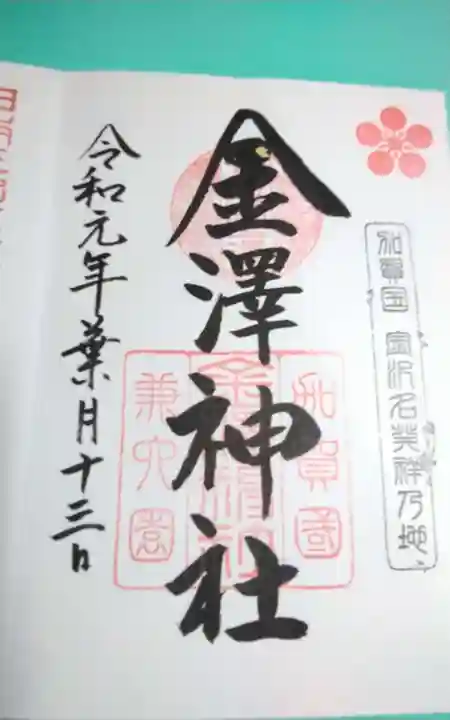 加賀国 金沢名発祥乃地
金澤神社
加賀國
金澤神社
兼六園
令和元年葉月十三日